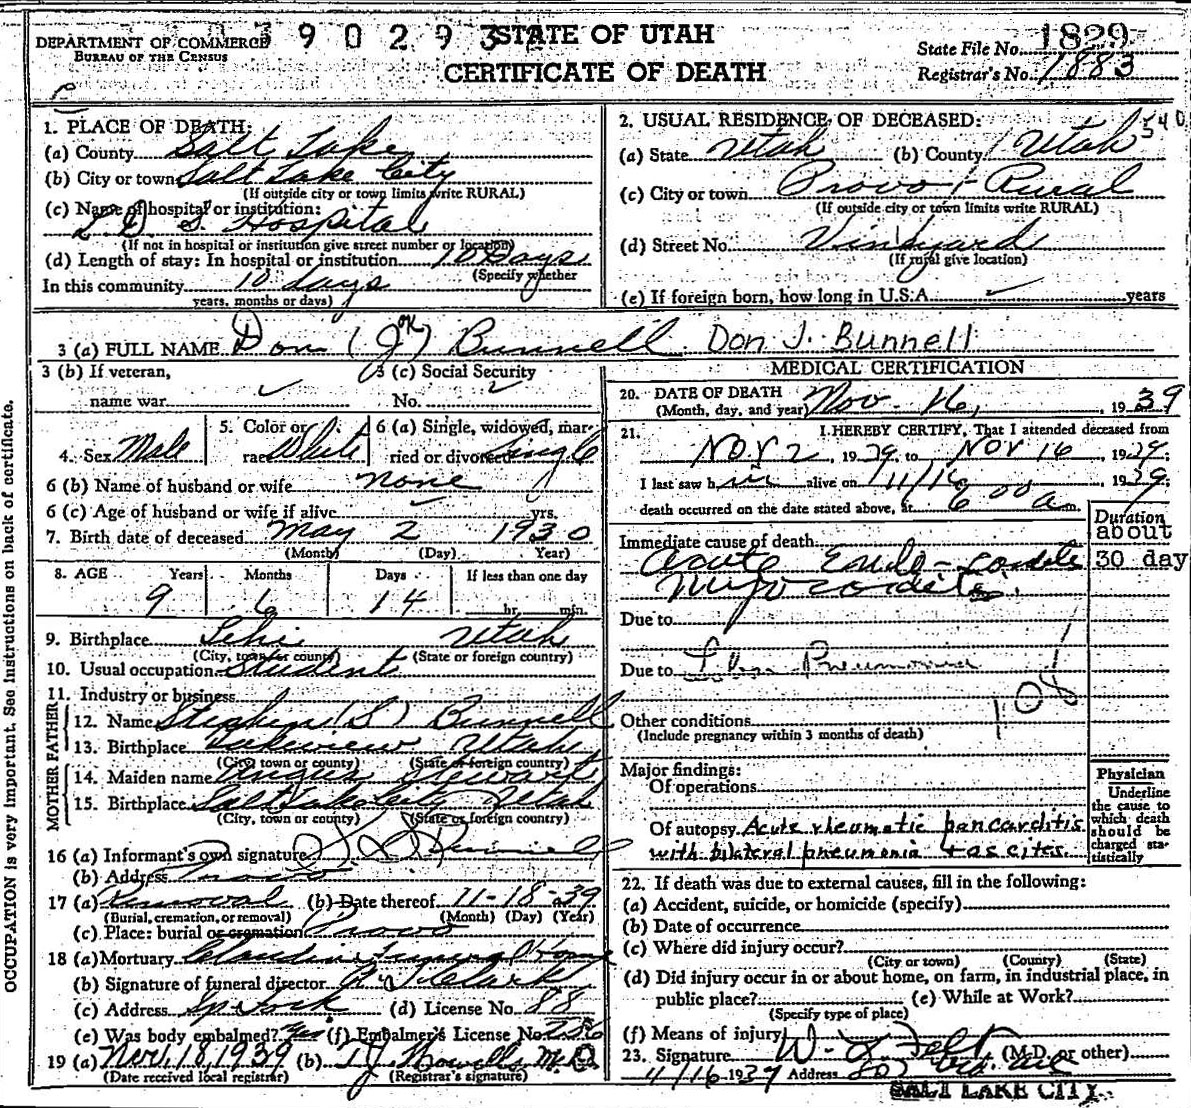 390293
STATE OF UTAH
CERTIFICATE OF DEATH
DEPARTMENT OF COMMERCE
BUREAU OF THE CENSUS
State File No. 1829
Registrar's No. 1883
1. PLACE OF DEATH:
(a) County Salt Lake
(b) City or town Salt Lake City
(If outside city or town limits write RURAL)
(c) Name of hospital or institution:
L. D. S. Hospital
(If not in hospital or institution give street number or location)
(d) Length of stay: In hospital or institution 10 Days
(Specify whether
In this community 10 days
years, months or days)
2. USUAL RESIDENCE OF DECEASED: 540
(a) State Utah (b) County Utah
(c) City or town Provo - Rural
(If outside city or town limits write RURAL)
(d) Street No. Vineyard
(If rural give location)
(e) If foreign born, how long in U.S.A. years
3 (a) FULL NAME Don (J) Bunnell Don J. Bunnell
OK
3 (b) If veteran,
name war
3 (c) Social Security
No.
4. Sex Male
5. Color or
race White
6 (a) Single, widowed, mar-
ried or divorced Single
6 (b) Name of husband or wife none
6 (c) Age of husband or wife if alive yrs.
7. Birth date of deceased May 2 1930
(Month) (Day) Year)
8. AGE Years Months Days If less than one day
9 6 14 hr. min.
9. Birthplace Lehi Utah
(City, town or county) (State or foreign country)
10. Usual occupation Student
11. Industry or business
FATHER
12. Name Stephen (L) Bunnell
13. Birthplace Lakeview Utah
(City, town or county) (State or foreign country)
MOTHER
14. Maiden name Stewart
15. Birthplace Salt Lake City Utah
(City, town or county) (State or foreign country)
16 (a) Informant's own signature Bunnell
(b) Address Provo
17 (a) Removal (b) Date thereof 11-18-39
(Burial, cremation, or removal) (Month) (Day) (Year)
(c) Place: burial or cremation Provo
18 (a) Mortuary Claudin Funeral Home
(b) Signature of funeral director Clark
(c) Address (d) License No. 88
(e) Was body embalmed? Yes (f) Embalmer's License No. 256
19 (a) Nov. 18, 1939 (b) T J Howells M.D.
(Date received local registrar) (Registrar's signature)
MEDICAL CERTIFICATION
20. DATE OF DEATH Nov. 16, 1939
(Month, day, and year)
21. I HEREBY CERTIFY, That I attended deceased from
Nov 2, 1939, to Nov 16, 1939;
I last saw him alive on 11/16, 1939;
death occurred on the date stated above, at 6 00 a m.
Duration
Immediate cause of death
about
Acute Endo-cardi
30 day
Myocarditis.
Due to
Due to Pneumonia
108
Other conditions
(Include pregnancy within 3 months of death)
Major findings:
Of operations
Of autopsy Acute rheumatic pancarditis
with bilateral pneumonia + ascites.
Physician
Underline
the cause to
which death
should be
charged sta-
tistically
22. If death was due to external causes, fill in the following:
(a) Accident, suicide, or homicide (specify)
(b) Date of occurrence
(c) Where did injury occur?
(City or town) (County) (State)
(d) Did injury occur in or about home, on farm, in industrial place, in
public place? (e) While at Work?
(Specify type of place)
(f) Means of injury
23. Signature W. Felt (M.D. or other)
11/16 1939 Address
SALT LAKE CITY.
OCCUPATION is very important. See instructions on back of certificate.